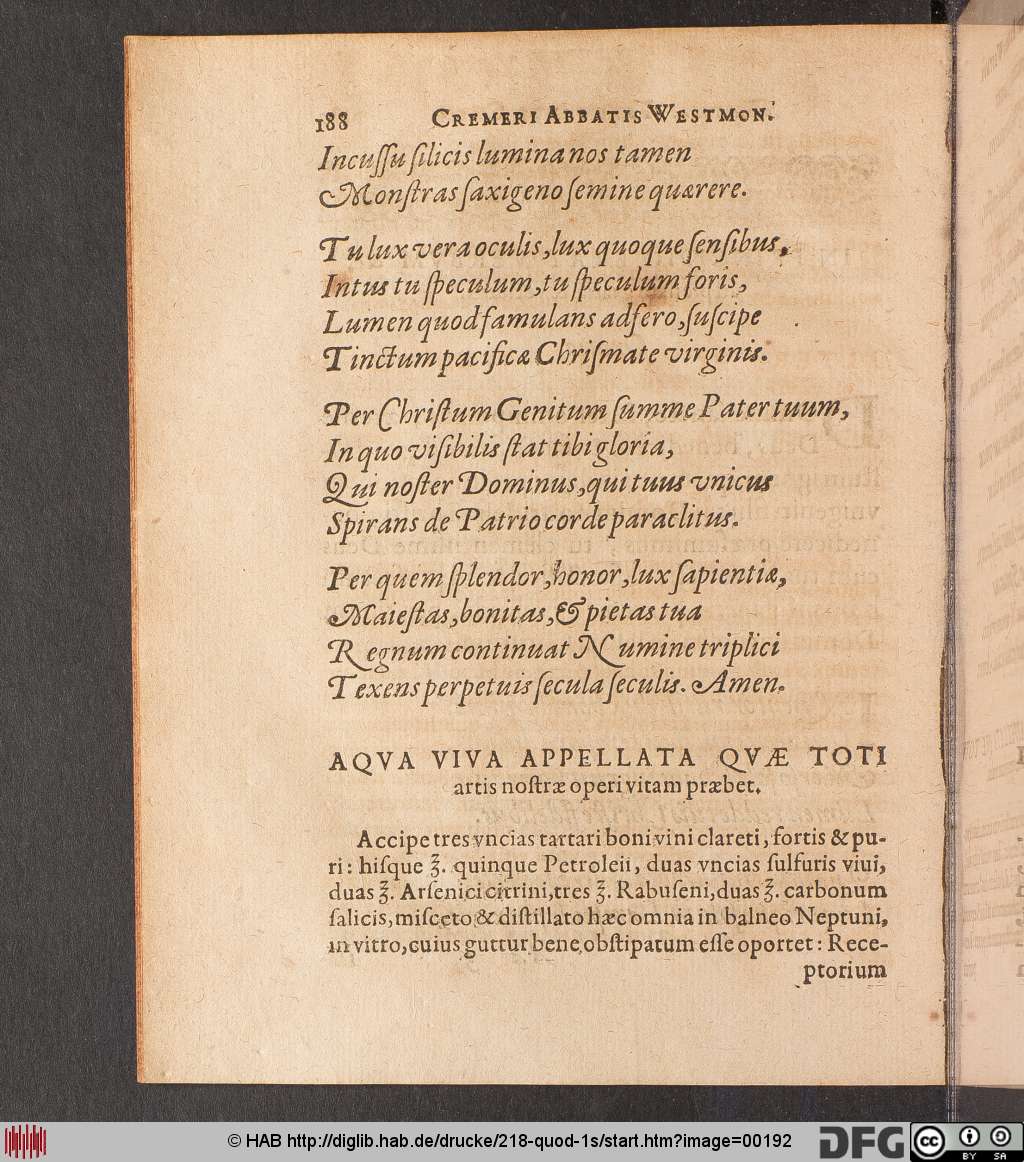 188 CREMERI ABBATIS WESTMON.
Incuſſu ſilicis lumina nos tamen
Monſtras ſaxigeno ſemine quærere.
Tu lux vera oculis, lux quoque ſenſibus,
Intus tu ſpeculum, tu ſpeculum foris,
Lumen quod famulans adfero, ſuſcipe
Tinctum pacificæ Chriſmate virginis.
Per Chriſtum Genitum ſumme Pater tuum,
In quo viſibilis ſtat tibi gloria,
Qui noſter Dominus, qui tuus vnicus
Spirans de Patrio corde paraclitus.
Per quem ſplendor, honor, lux ſapientiæ,
Maieſtas, bonitas, & pietas tua
Regnum continuat Numine triplici
Texens perpetuis ſecula ſeculis. Amen.
AQVA VIVA APPELLATA QVÆ TOTI
artis noſtræ operi vitam præbet.
Accipe tres vncias tartari boni vini clareti, fortis & pu-
ri: hiſque ℥. quinque Petroleii, duas vncias ſulfuris viui,
duas ℥. Arſenici citrini, tres ℥. Rabuſeni, duas ℥. carbonum
ſalicis, miſceto & diſtillato hæc omnia in balneo Neptuni,
in vitro, cuius guttur bene obſtipatum eſſe oportet: Rece-
ptorium
© HAB http://diglib.hab.de/drucke/218-quod-1s/start.htm?image=00192
DFG
cc
BY SA